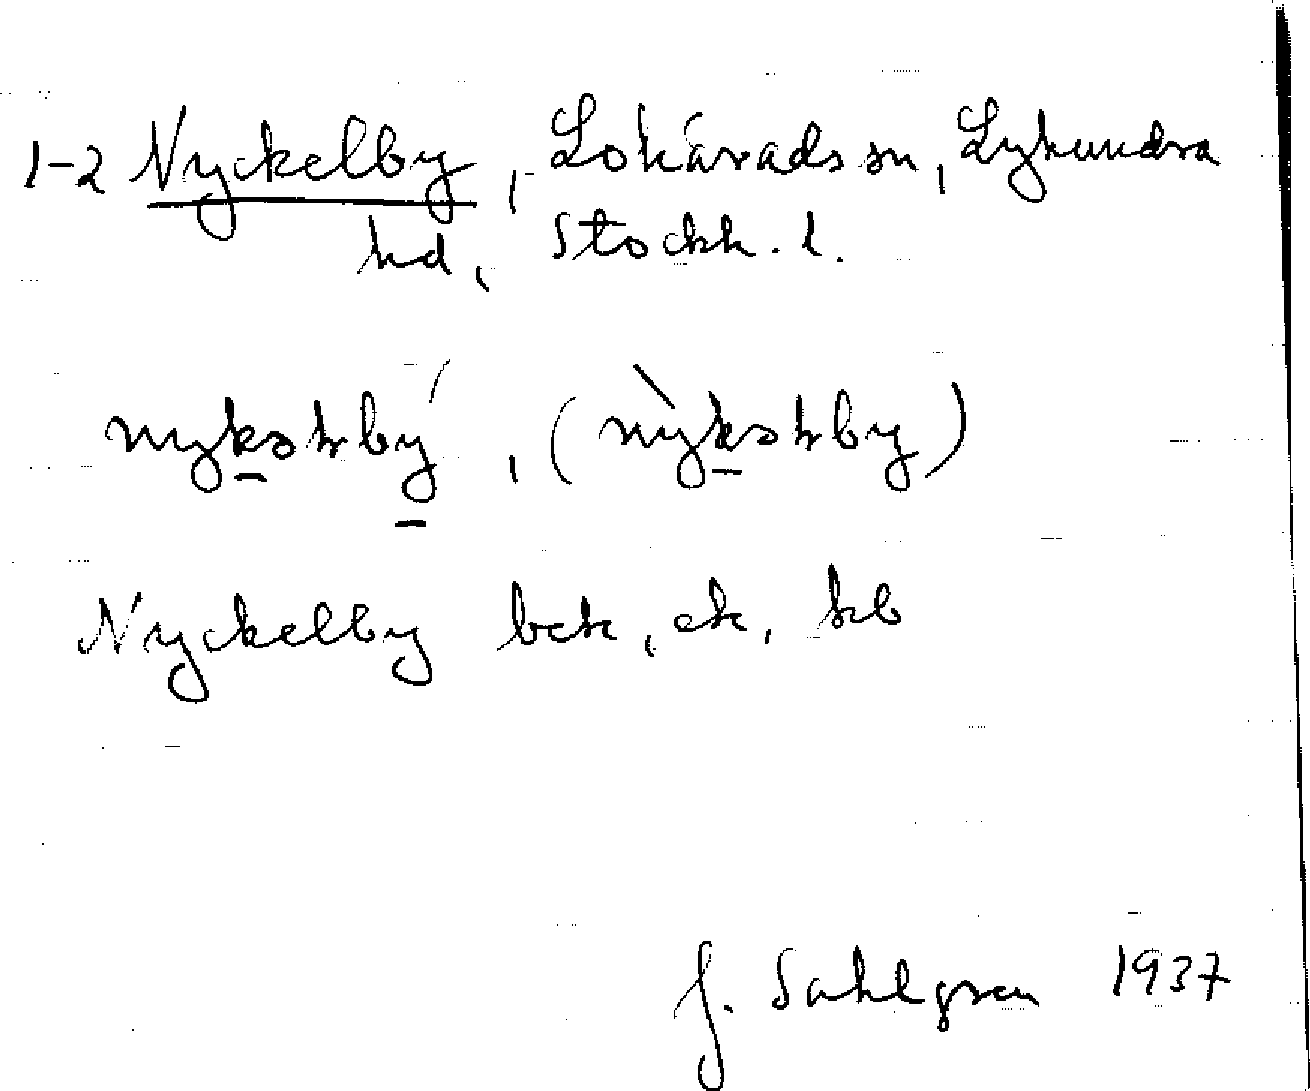 1-2 Nyckelby, Lohärads sn, Lyhundra
hd, Stockh. l.
Nyckelby bek, ek, kb
J. Sahlgren 1937